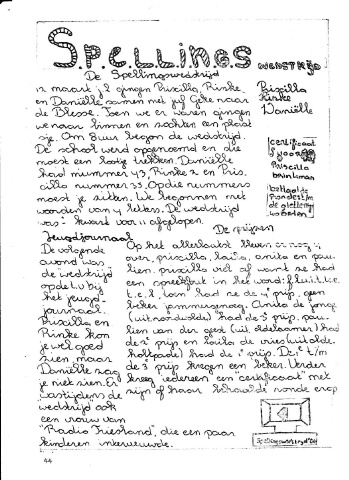 S.P.E.L.L.I.N.G.S
WEDSTRIJD
De Spellingswedstrijd
12 maart j.l. gingen Priscilla, Rinke,
en Daniëlle samen met juf Gitte naar
de Blesse. Toen we er waren gingen
we naar binnen en zochten een plaat
sje. Om 8 uur begon de wedstrijd.
De school werd opgenoemd en die
moest een lootje trekken. Daniëlle
had nummer 43, Rinke 2 en Pris.
cilla nummer 33. Op die nummers
moest je zitten. We begonnen met
woorden van 4 letters. De wedstrijd
was ± kwart voor 11 afgelopen.
Priscilla
Rinke
Daniëlle
certificaat
voor
Priscilla
brinkman
Jeugdjournaal
De volgende
avond was
de wedstrijd
op de t.v. bij
het jeugd-
journaal.
Priscilla en
Rinke kon
je wel goed
zien, maar
Daniëlle zag
je niet zien. Er
wedstrijd ook
een vrouw van
"Radio Friesland", die een paar
kinderen interviewde.
De prijzen
Op het allerlaatst bleven er nog 4
over, priscilla, laila, anita en pau-
lien. priscilla viel af want ze had
een spreekfout in het woord: fluit.t.e.
had ze de 4e prijs, geen
beker jammergenoeg. Anita de jonge
(uit noordwolde) had de 3e prijs, pau-
lien van der gest (uit oldelamer) had
de 2e prijs en laila de vries (uit olde-
holtpade) had de 1e prijs. De 1e t/m
de 3e prijs kregen een beker. Verder
kreeg iedereen een "certificaat" met
zijn of haar behaalde ronde erop
44